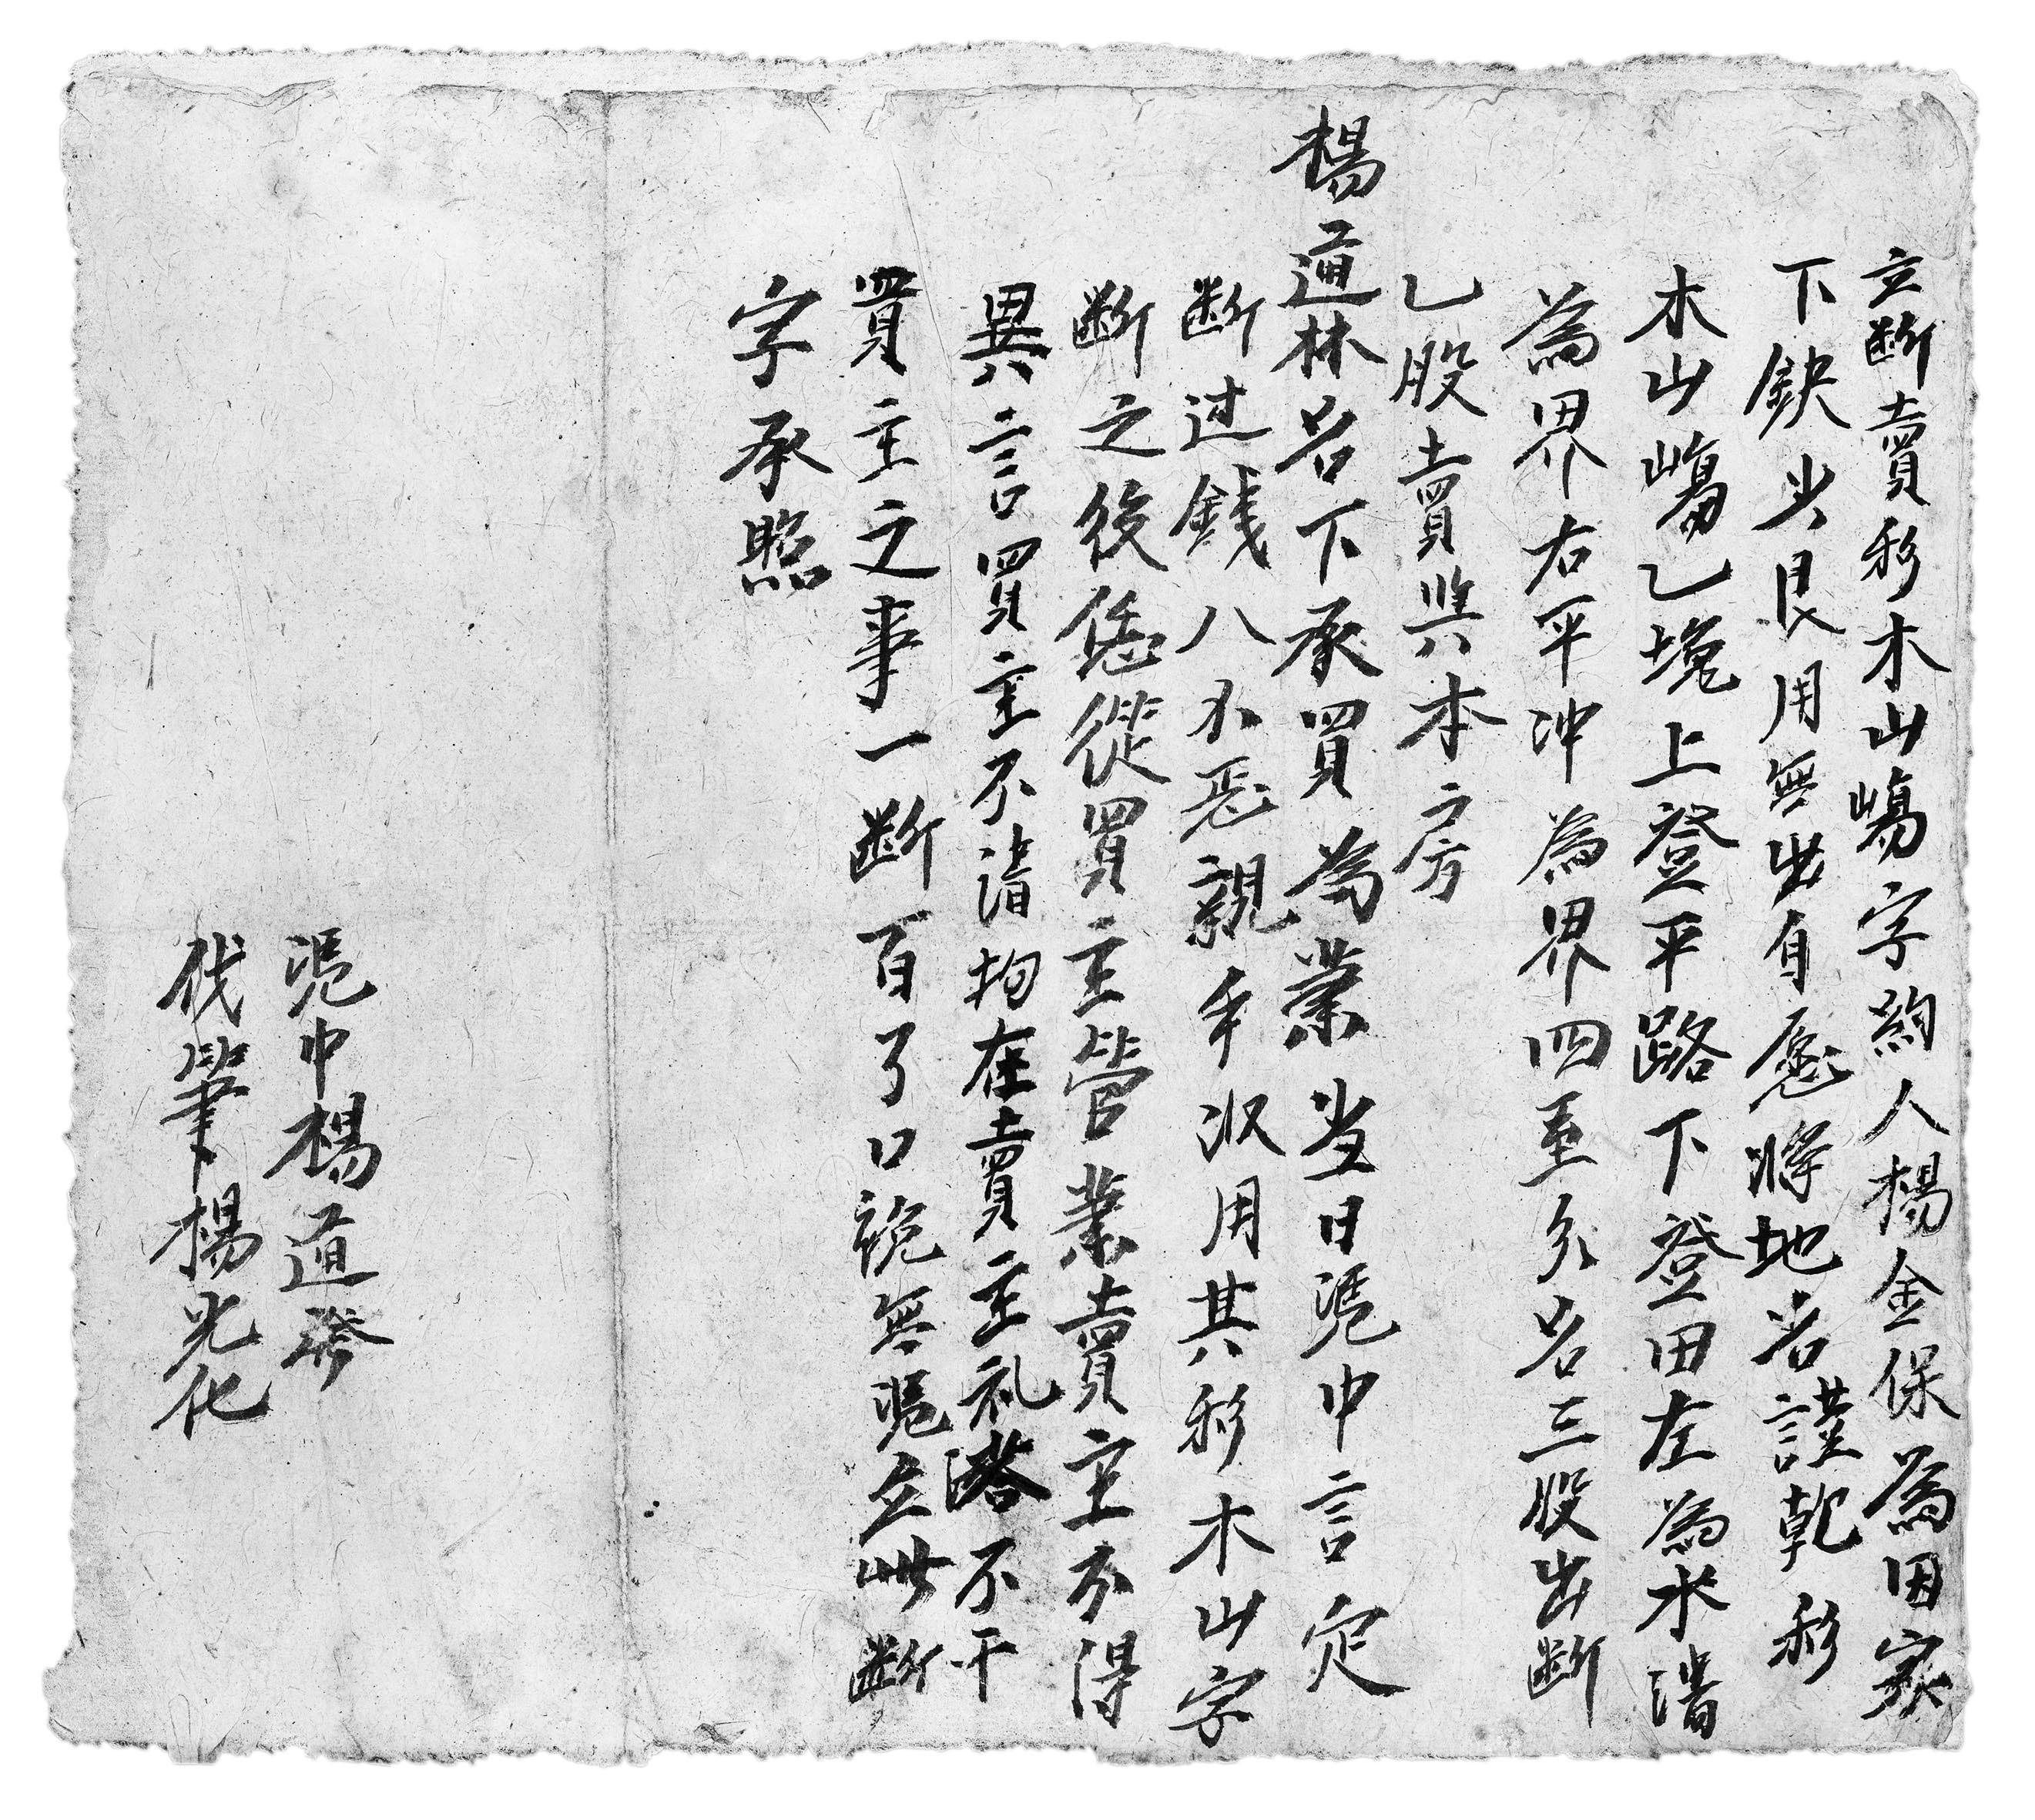 立断賣杉木山塲字約人楊金保為因家
下缺少艮用無出自愿將地名謹乾杉
木山塲乙塊上登平路下登田左為水溝
為界右平冲為界四至分名三股出断
乙股賣與本房
楊道林名下承買為業當日凴中言定
断过錢八不㐫親手收用其杉木山字
断之後恁從買主營業賣主不得
異言買主不清拘在賣主礼落不干
買主之事一断百了口説無凴立此断
字承照
凴中楊道發
伐筆楊光化